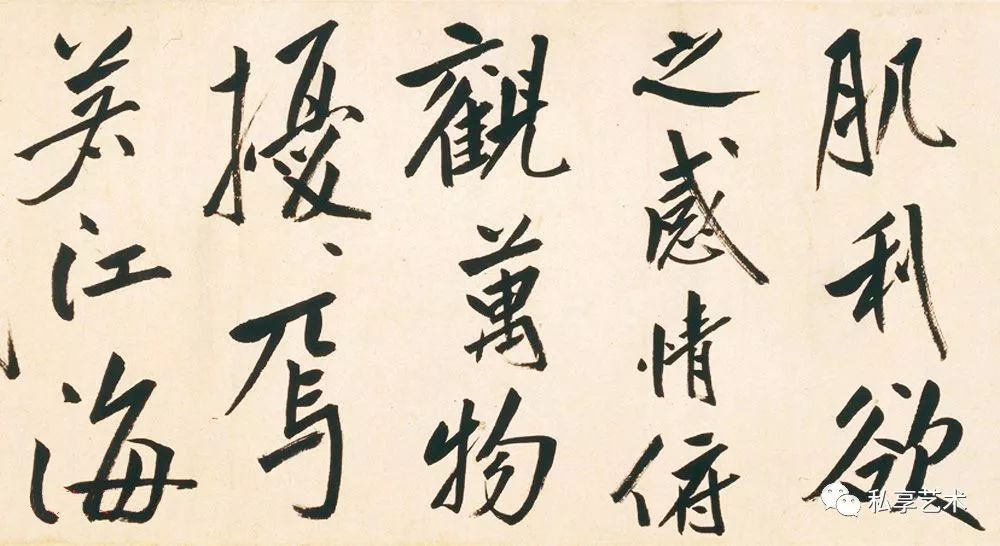 肌利欲
之感情俯
觀萬物
擾〻焉
若江海
私享艺术